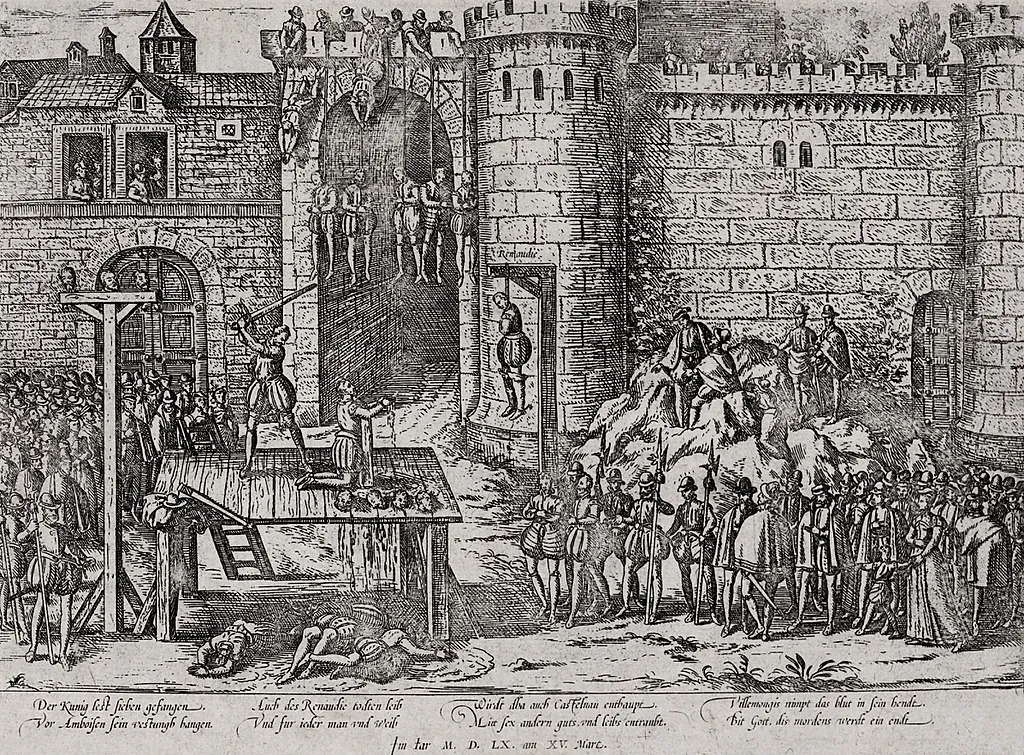 Renaudie
Der Kunig lest sieben gefangen
Vor Amboisen sein vestungh hangen.
Auch des Renaudie todten leib
Vnd fur ieder man vnd weib
Wirdt alha auch Castelnau enthaupt
Mit sex andern guts vnd leibs entraubt.
Villemongis nimpt das blut in sein hendt.
Bit Gott, dis mordens werdt ein endt.
Im Iar M. D. LX. am XV. Mart.